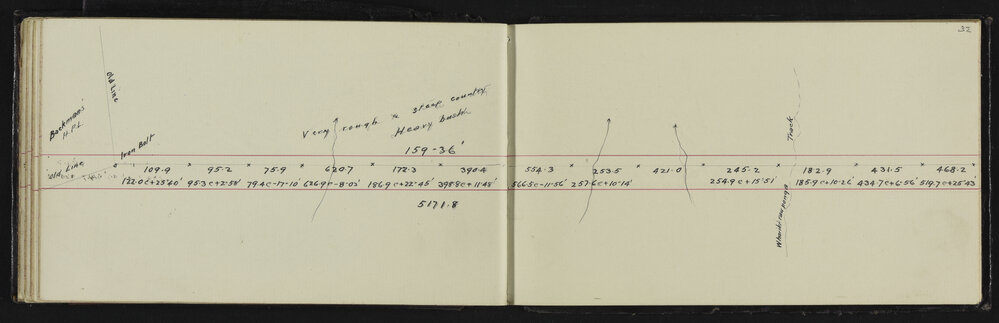 32
Old Line
Bockmans'
H.P.L.
Iron Bolt
Very rough & steep country
Heavy bush
159-36'
Track
Old Line
109.9 95.2 75.9 620.7 172.3 390.4 554.3 253.5 421.0 245.2 182.9 431.5 468.2
122.0 C+25°40' 95.3 C+2.58' 79.4 C-17.10' 626.9 C-8.03' 186.9 C+22.45' 398.8 C+11.48' 566.5 C-11.56' 257.6 C+10.14' 254.9 C+15.51' 185.9 C+10.26' 434.7 C+6.56' 519.7 C+25.43'
5171.8